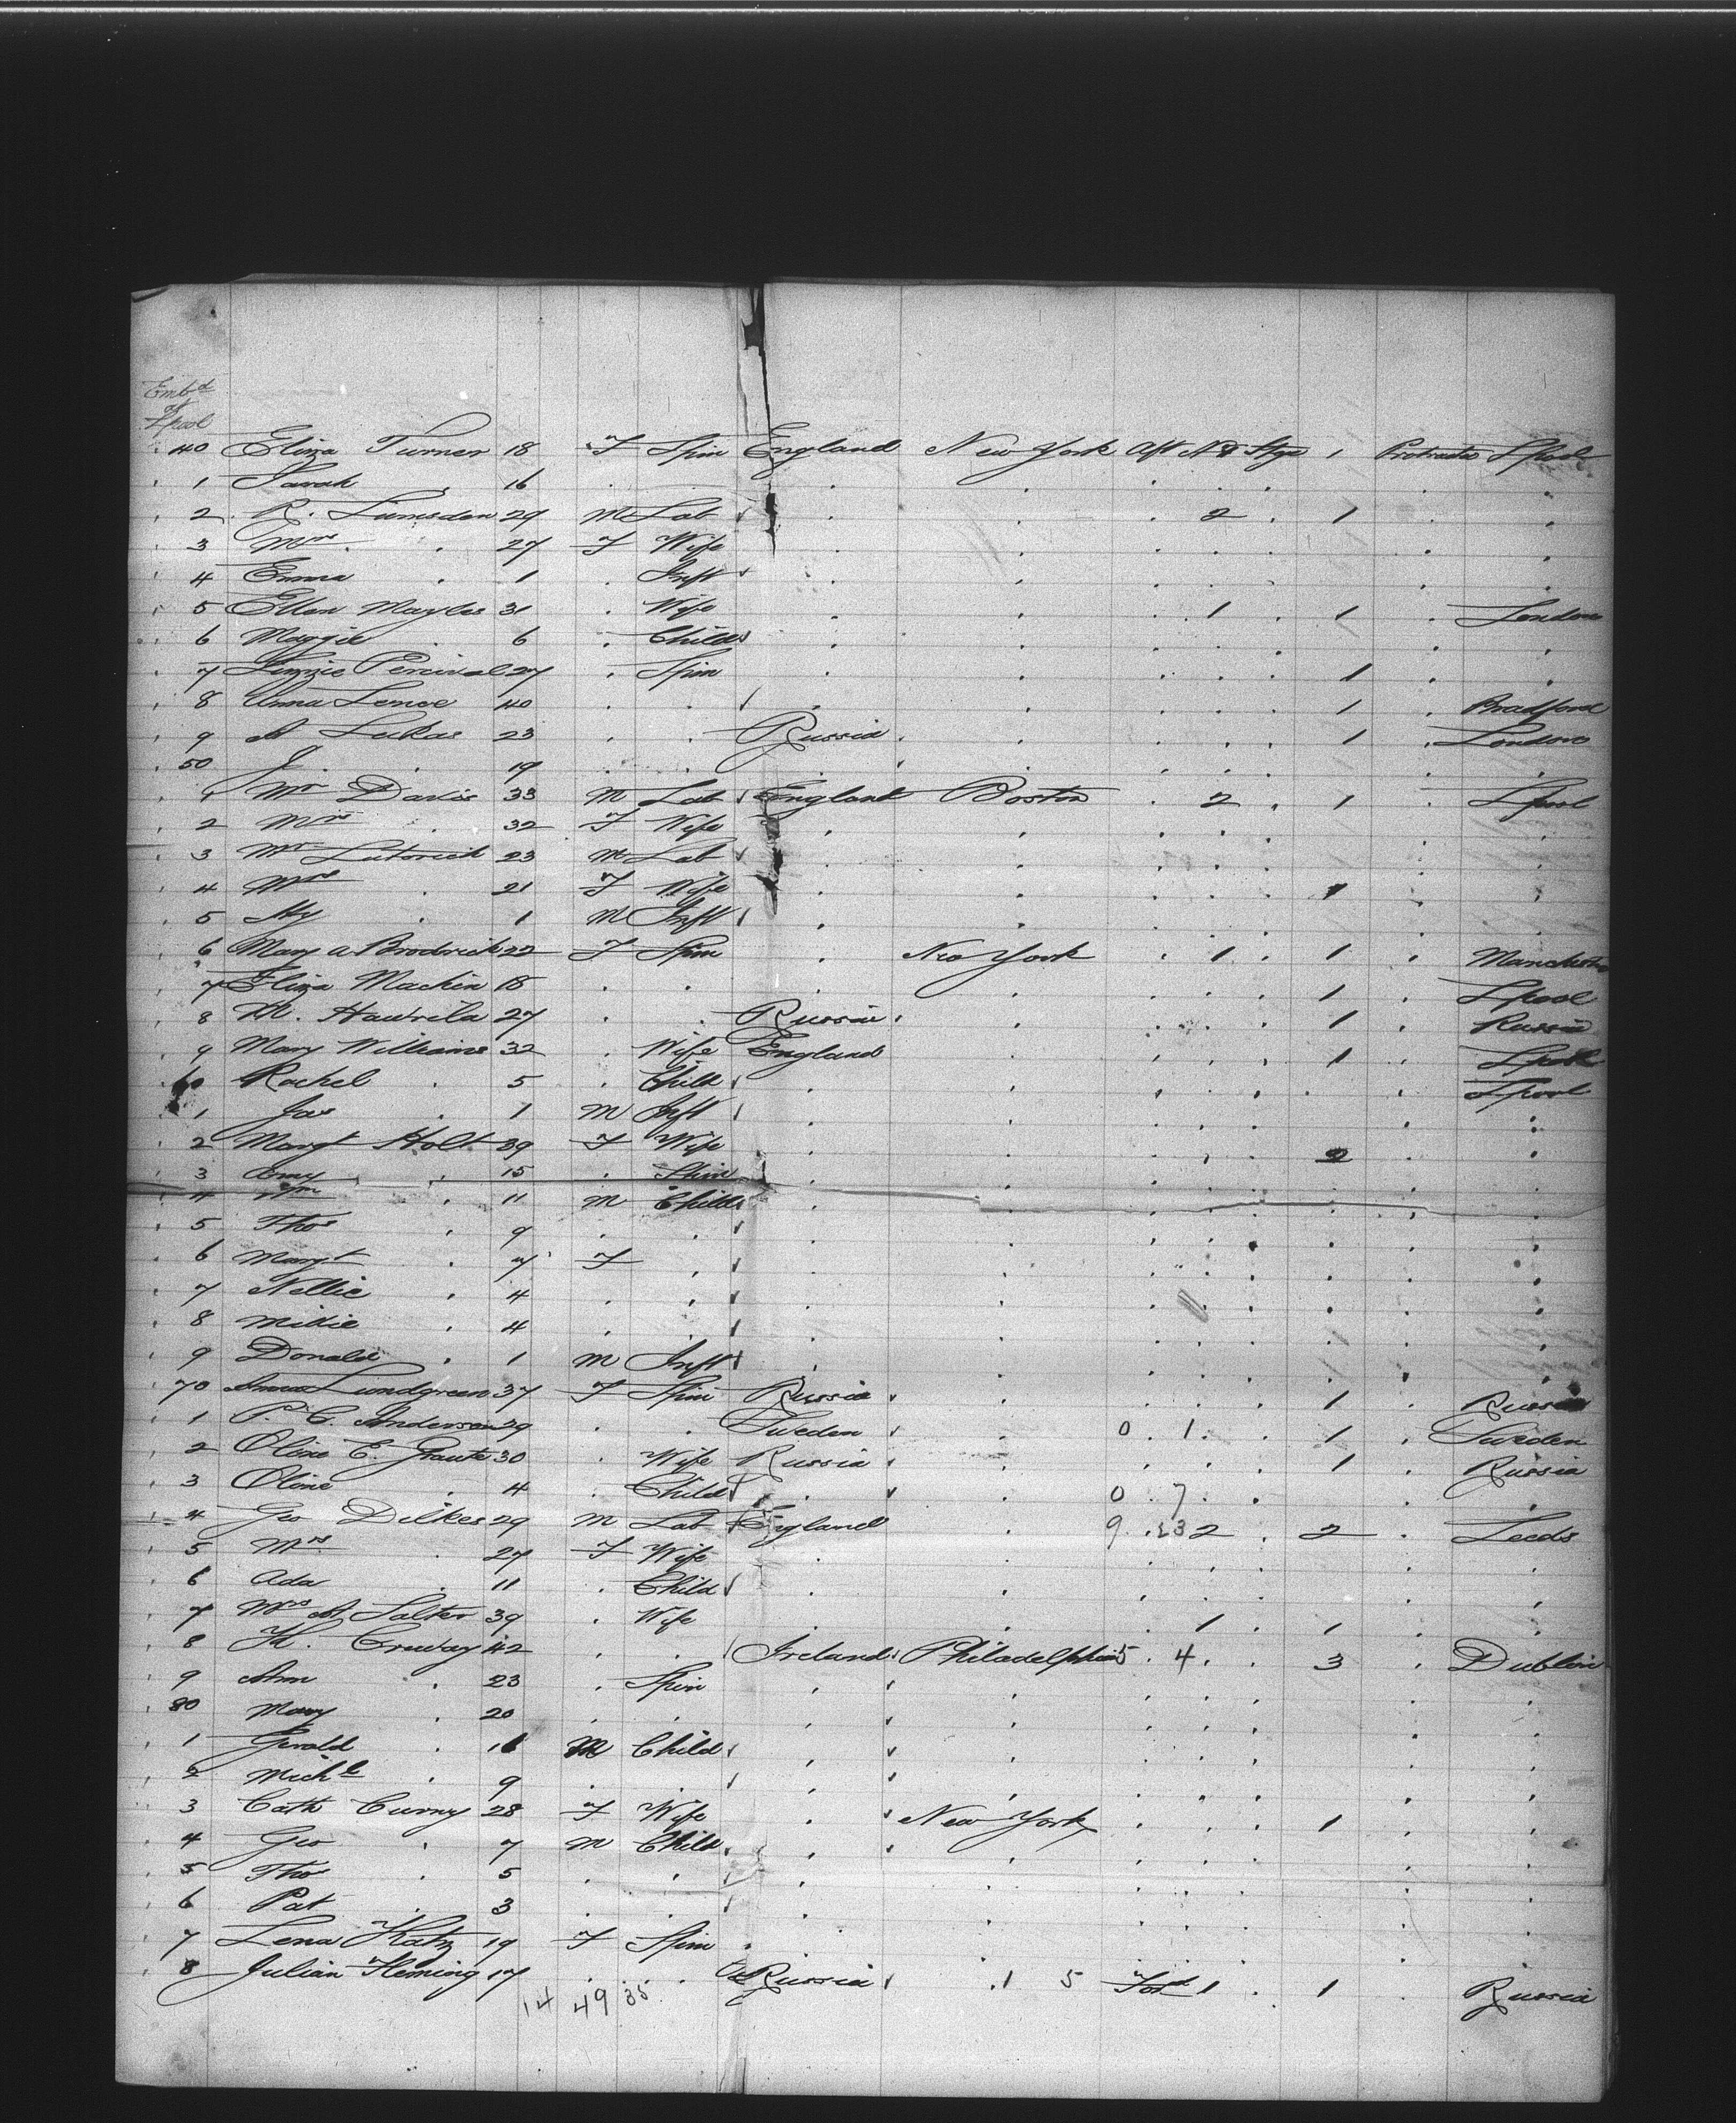 Embd
at
Lpool
40 Eliza Turner 18 F Spin England New York Aft N8 Stge 1 Protracted Lpool
1 Sarah 16
2 R. Lumsden 29 M Lab 2 1
3 Mrs 27 F Wife
4 Emma 1 Inft
5 Ellen Mayles 31 Wife 1 1 London
6 Maggie 6 Child
7 Lizzie Percival 27 Spin 1
8 Anna Lence 40 1 Bradford
9 A Lukas 23 Russia 1 London
50 J 19
1 Mr Davis 33 M Lab England Boston 2 1 Lpool
2 Mrs 32 F Wife
3 Mr Lutovich 23 M Lab
4 Mrs 21 F Wife 1
5 Hy 1 M Inft
6 Mary A Brodrick 22 F Spin New York 1 1 Manchester
7 Eliza Machin 18 1 Lpool
8 M. Hawrila 27 Russia 1 Russia
9 Mary Williams 32 Wife England 1 Lpool
60 Rachel 5 Child Lpool
1 Jas 1 M Inft
2 Margt Holt 39 F Wife 2
3 Amy 15 Spin
4 Wm 11 M Child
5 Thos 9
6 Margt 7 F
7 Nellie 4
8 Millie 4
9 Donald 1 M Inft
70 Anna Lundgreen 37 F Spin Russia 1 Russia
1 P. C. Anderson 29 Sweden 0 1 1 Sweden
2 Oline E. Graute 30 Wife Russia 1 Russia
3 Oline 4 Child 0 7
4 Geo Dilkes 29 M Lab England 9 23 2 2 Leeds
5 Mrs 27 F Wife
6 Ada 11 Child
7 Mrs A Salter 39 Wife 1 1
8 M. Conway 42 Ireland Philadelphia 5 4 3 Dublin
9 Ann 23 Spin
80 Mary 20
1 Gerald 11 M Child
2 Michl 9
3 Cath Curny 28 F Wife New York 1
4 Geo 7 M Child
5 Thos 5
6 Pat 3
7 Lena Katz 19 F Spin
8 Julian Fleming 17 Russia 1 5 Ford 1 1 Russia
14 49 35